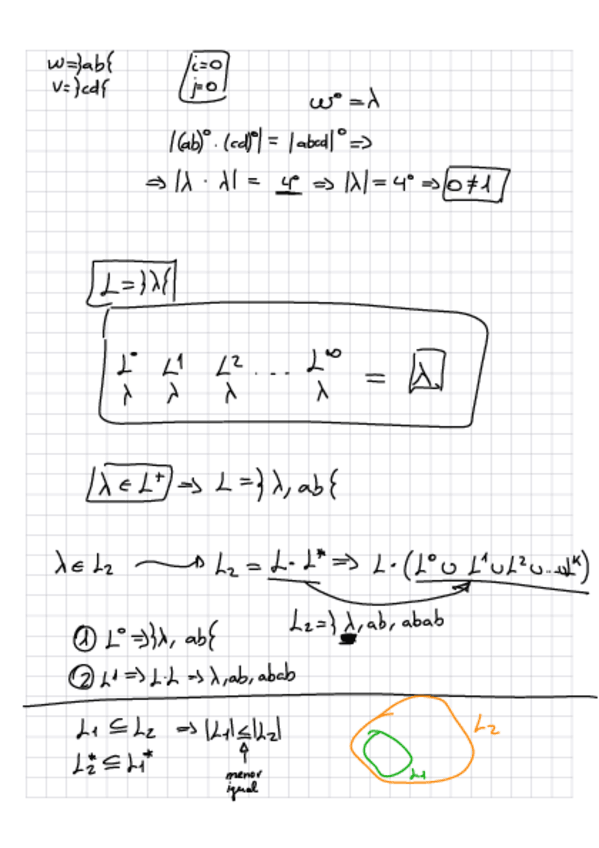 w=}ab{
v=}cd{
i=0
j=0
w⁰ = λ
|(ab)⁰ · (cd)⁰| = |abcd|⁰ =>
=> |λ · λ| = 4⁰ => |λ| = 4⁰ => 0≠1
L = }λ{
L⁰ L¹ L² ... L^∞ = λ
λ λ λ λ
λ ∈ L⁺ => L = } λ, ab{
λ ∈ L₂ → L₂ = L · L* => L · (L⁰ ∪ L¹ ∪ L² ∪ ... ∪ L^k)
L₂ = } λ, ab, abab
① L⁰ => }λ, ab{
② L¹ => L·L => λ, ab, abab
L₁ ⊆ L₂ => |L₁| ≤ |L₂|
L₂* ⊆ L₁*
menor
igual
L₂
L₁